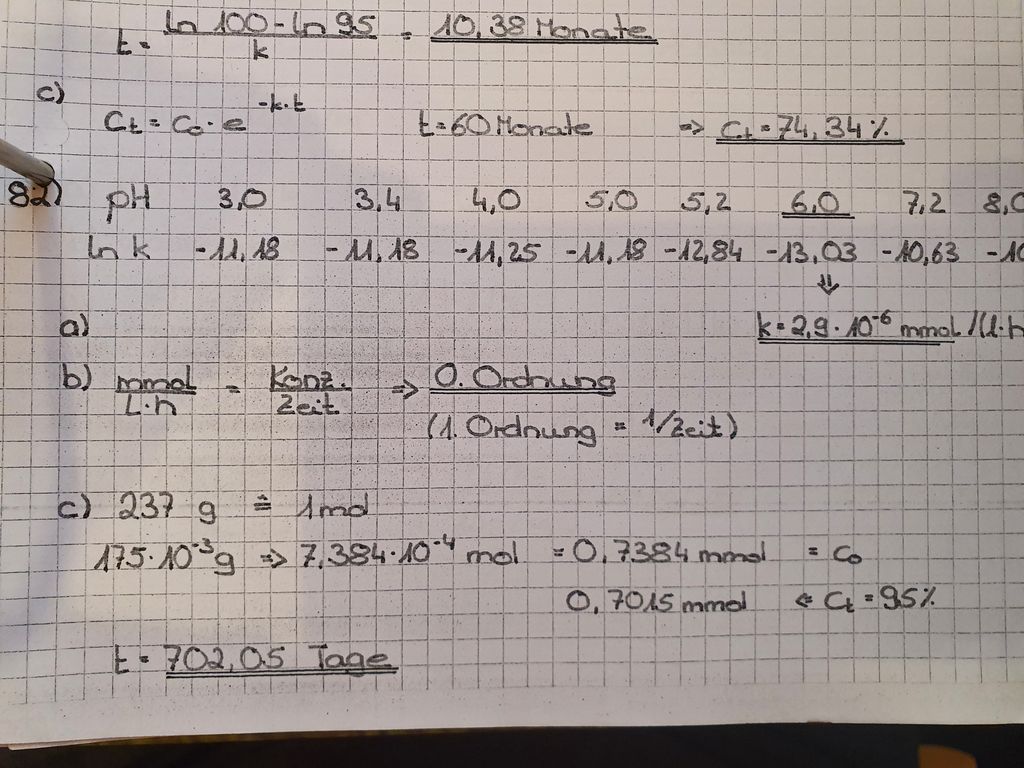 t = (ln 100 - ln 95) / k = 10,38 Monate
c) Ct = C0 · e^-k·t t = 60 Monate => Ct = 74,34 %
82) pH 3,0 3,4 4,0 5,0 5,2 6,0 7,2 8,0
ln k -11,18 -11,18 -11,25 -11,18 -12,84 -13,03 -10,63 -10
⇓
a) k = 2,9 · 10^-6 mmol/(L·h
b) mmol/L·h = Konz./Zeit => 0. Ordnung
(1. Ordnung = 1/Zeit)
c) 237 g ≙ 1 mol
175·10^-3 g => 7,384·10^-4 mol = 0,7384 mmol = C0
0,7015 mmol <= Ct = 95 %
t = 702,05 Tage